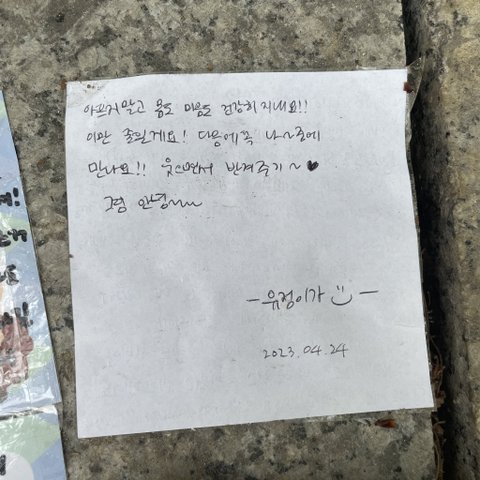 아프지말고 몸도 마음도 건강히지내요!!
이만 줄일게요! 다음에꼭 나~중에
만나요!! 웃으면서 반겨주기~♥
그럼 안녕~~~
-유정이가 -
2023.04.24